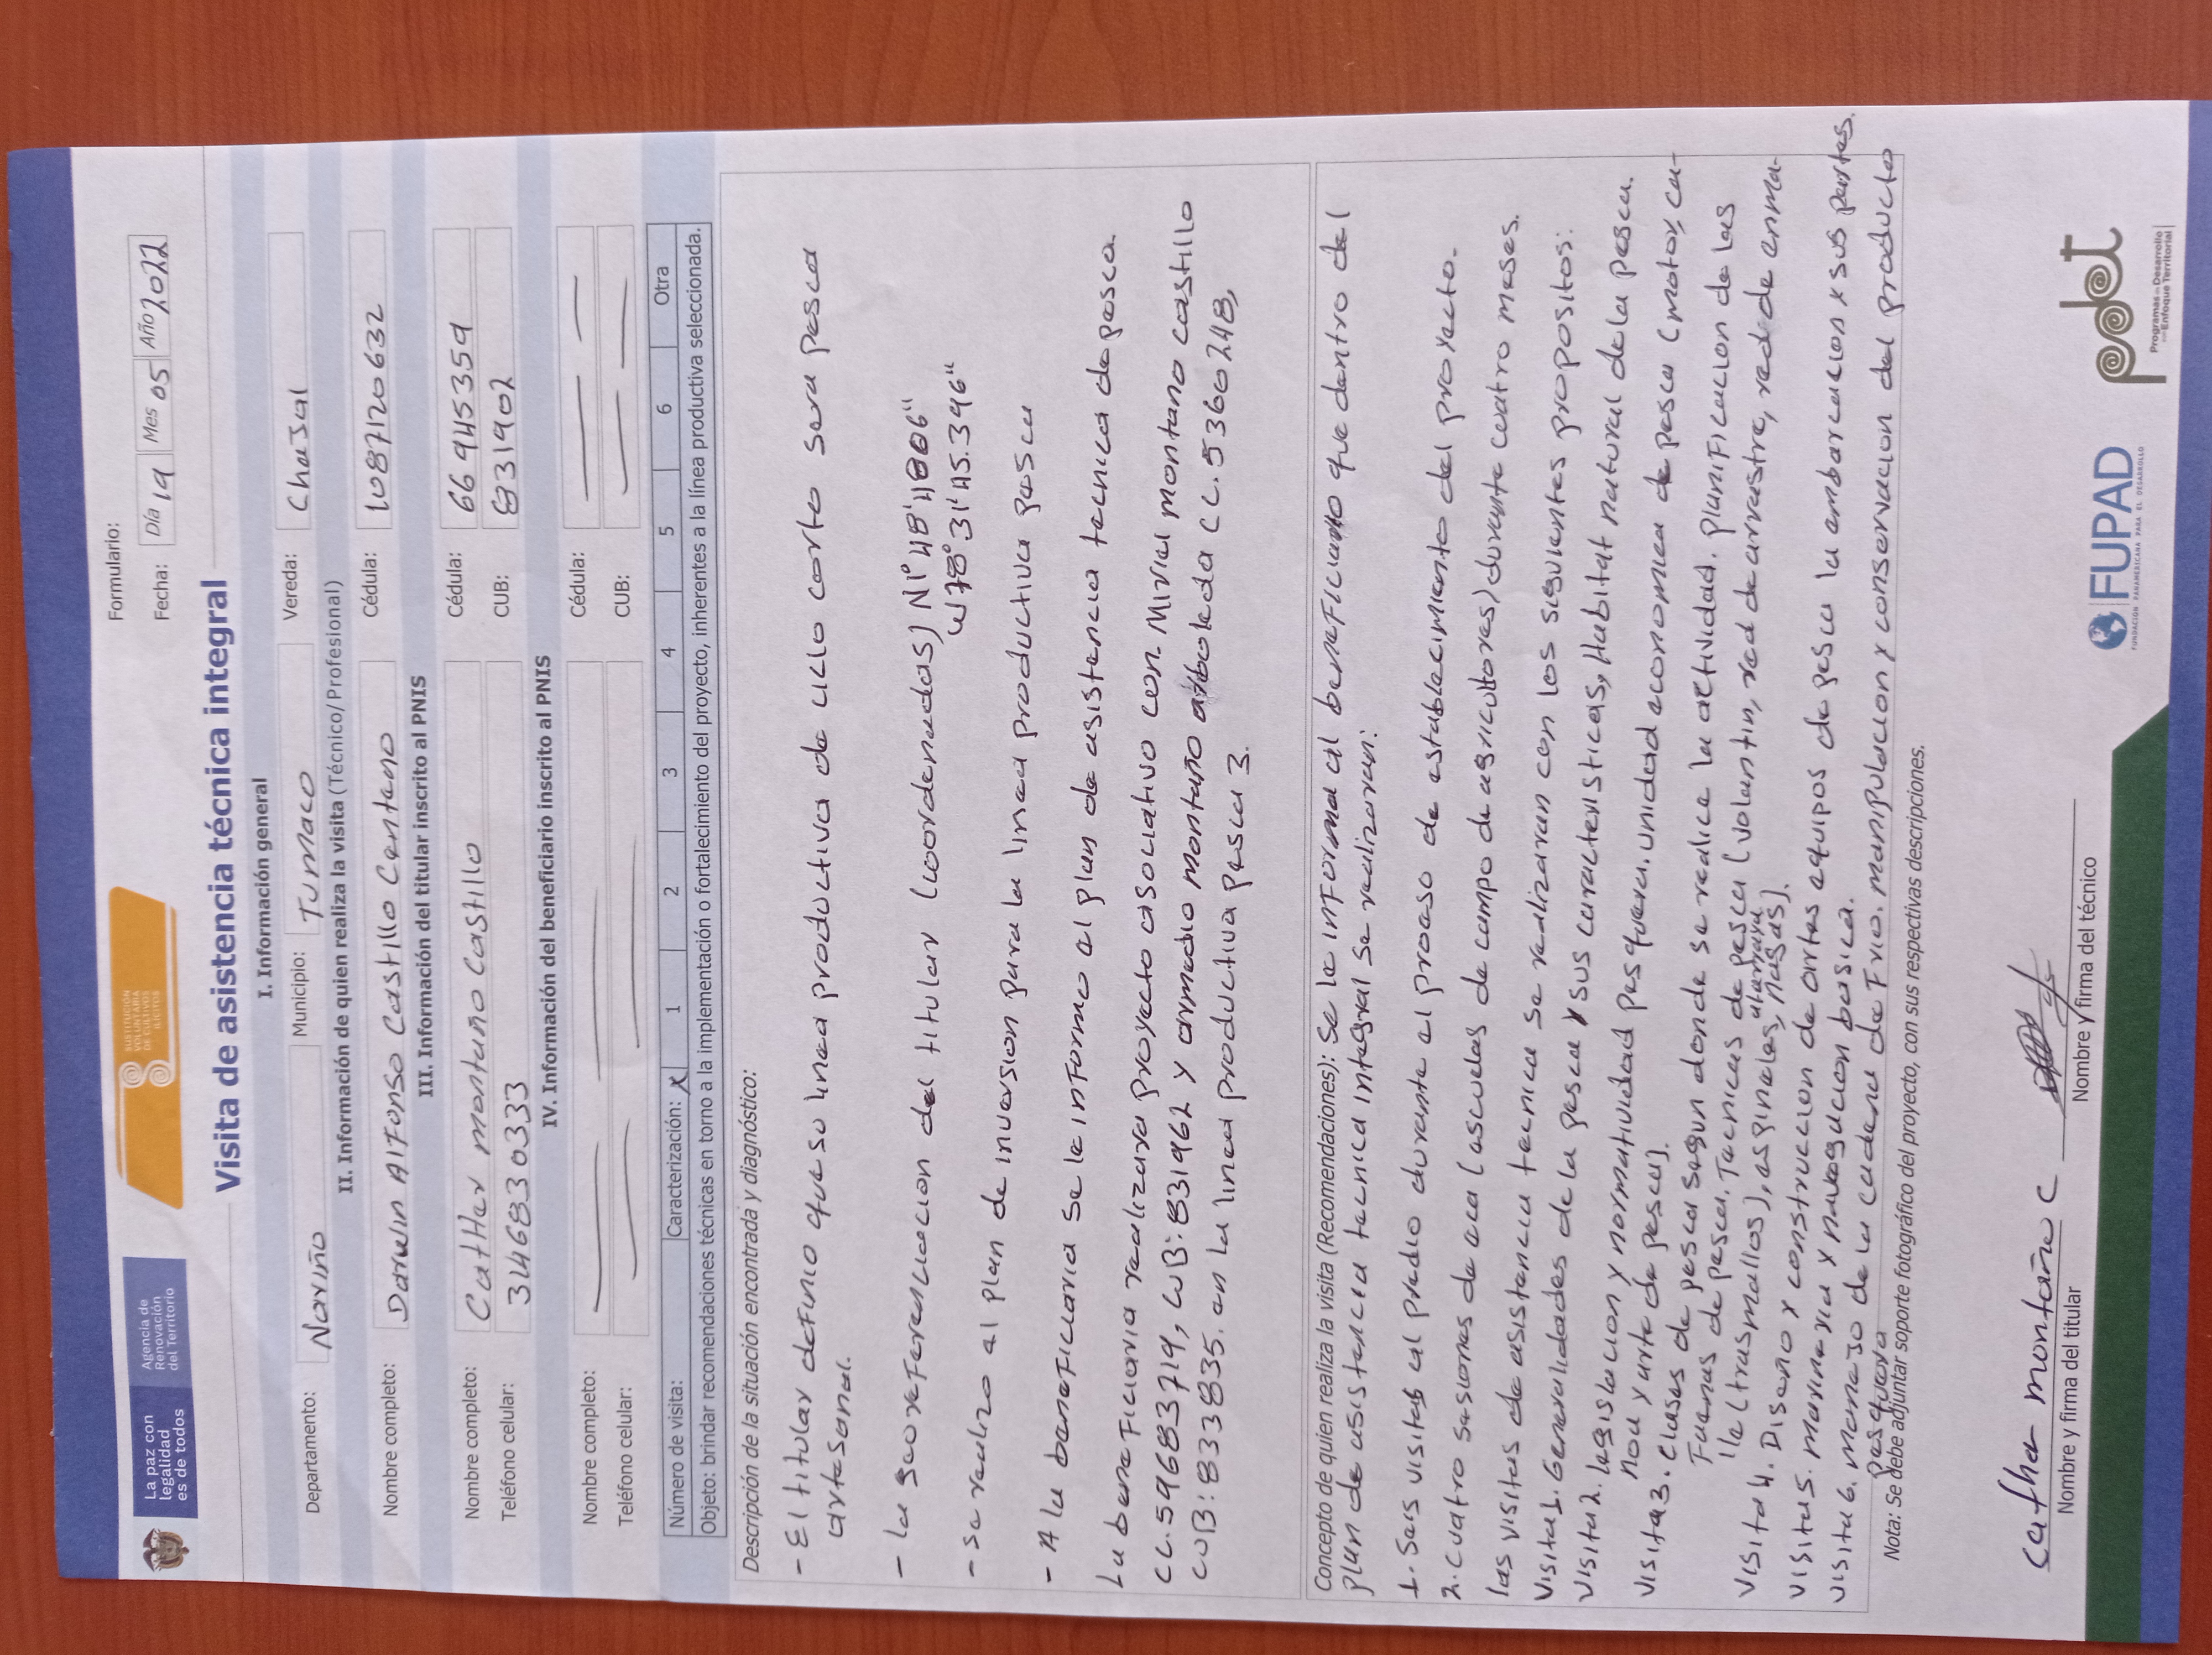 La paz con
legalidad
es de todos
Agencia de
Renovación
del Territorio
SUSTITUCIÓN
VOLUNTARIA
DE CULTIVOS
ILÍCITOS
Formulario:
Fecha: Día 19 Mes 05 Año 2022
Visita de asistencia técnica integral
I. Información general
Departamento: Nariño Municipio: Tumaco Vereda: Chajal
II. Información de quien realiza la visita (Técnico/ Profesional)
Nombre completo: Darwin Alfonso Castillo Centeno Cédula: 1087120632
III. Información del titular inscrito al PNIS
Nombre completo: Cather montaño Castillo Cédula: 66945359
Teléfono celular: 3146830333 CUB: 831902
IV. Información del beneficiario inscrito al PNIS
Nombre completo: Cédula:
Teléfono celular: CUB:
Número de visita: Caracterización: x 1 2 3 4 5 6 Otra
Objeto: brindar recomendaciones técnicas en torno a la implementación o fortalecimiento del proyecto, inherentes a la línea productiva seleccionada.
Descripción de la situación encontrada y diagnóstico:
- El titular definio que su linea productiva de ciclo corto sera pesca
artesanal.
- la georeferenciacion del titular (coordenadas) N1°48'
W78°31'45.396"
- se realizo el plan de inversion para la linea productiva pesca
- A la beneficiaria se le informo el plan de asistencia tecnica de pesca.
La beneficiaria realizara proyecto asociativo con Mirial montano castillo
CC. 59683719, CUB: 831962 y armedio montaño arboleda CC. 5360248,
CUB: 833835. en la linea productiva pesca 3.
Concepto de quien realiza la visita (Recomendaciones): Se le informa al beneficiario que dentro del
plan de asistencia tecnica integral se realizaran:
1. Seis visitas al predio durante el proceso de establecimiento del proyecto.
2. cuatro sesiones de eca (escuelas de campo de agricultores) durante cuatro meses.
las visitas de asistencia tecnica se realizaran con los siguientes propositos:
Visita1. Generalidades de la pesca y sus caracteristicas, Habitat natural de la pesca.
Visita2. legislacion y normatividad pesquera. unidad economica de pesca (motor, ca-
noa y arte de pesca).
Visita3. clases de pesca segun donde se realice la actividad. planificacion de las
Faenas de pesca. Tecnicas de pesca (volantin, red de arrastre, red de enma-
lle (trasmallos), espineles, atarraya, nasas).
Visita4. Diseño y construccion de artes equipos de pesca la embarcacion y sus partes.
Visita5. marineria y navegacion basica.
Visita6. manejo de la cadena de Frio. manipulacion y conservacion del producto
pesquero
Nota: Se debe adjuntar soporte fotográfico del proyecto, con sus respectivas descripciones.
cather montaño C
Nombre y firma del titular
Nombre y firma del técnico
FUPAD
FUNDACIÓN PANAMERICANA PARA EL DESARROLLO
pdet
Programas de Desarrollo
con Enfoque Territorial